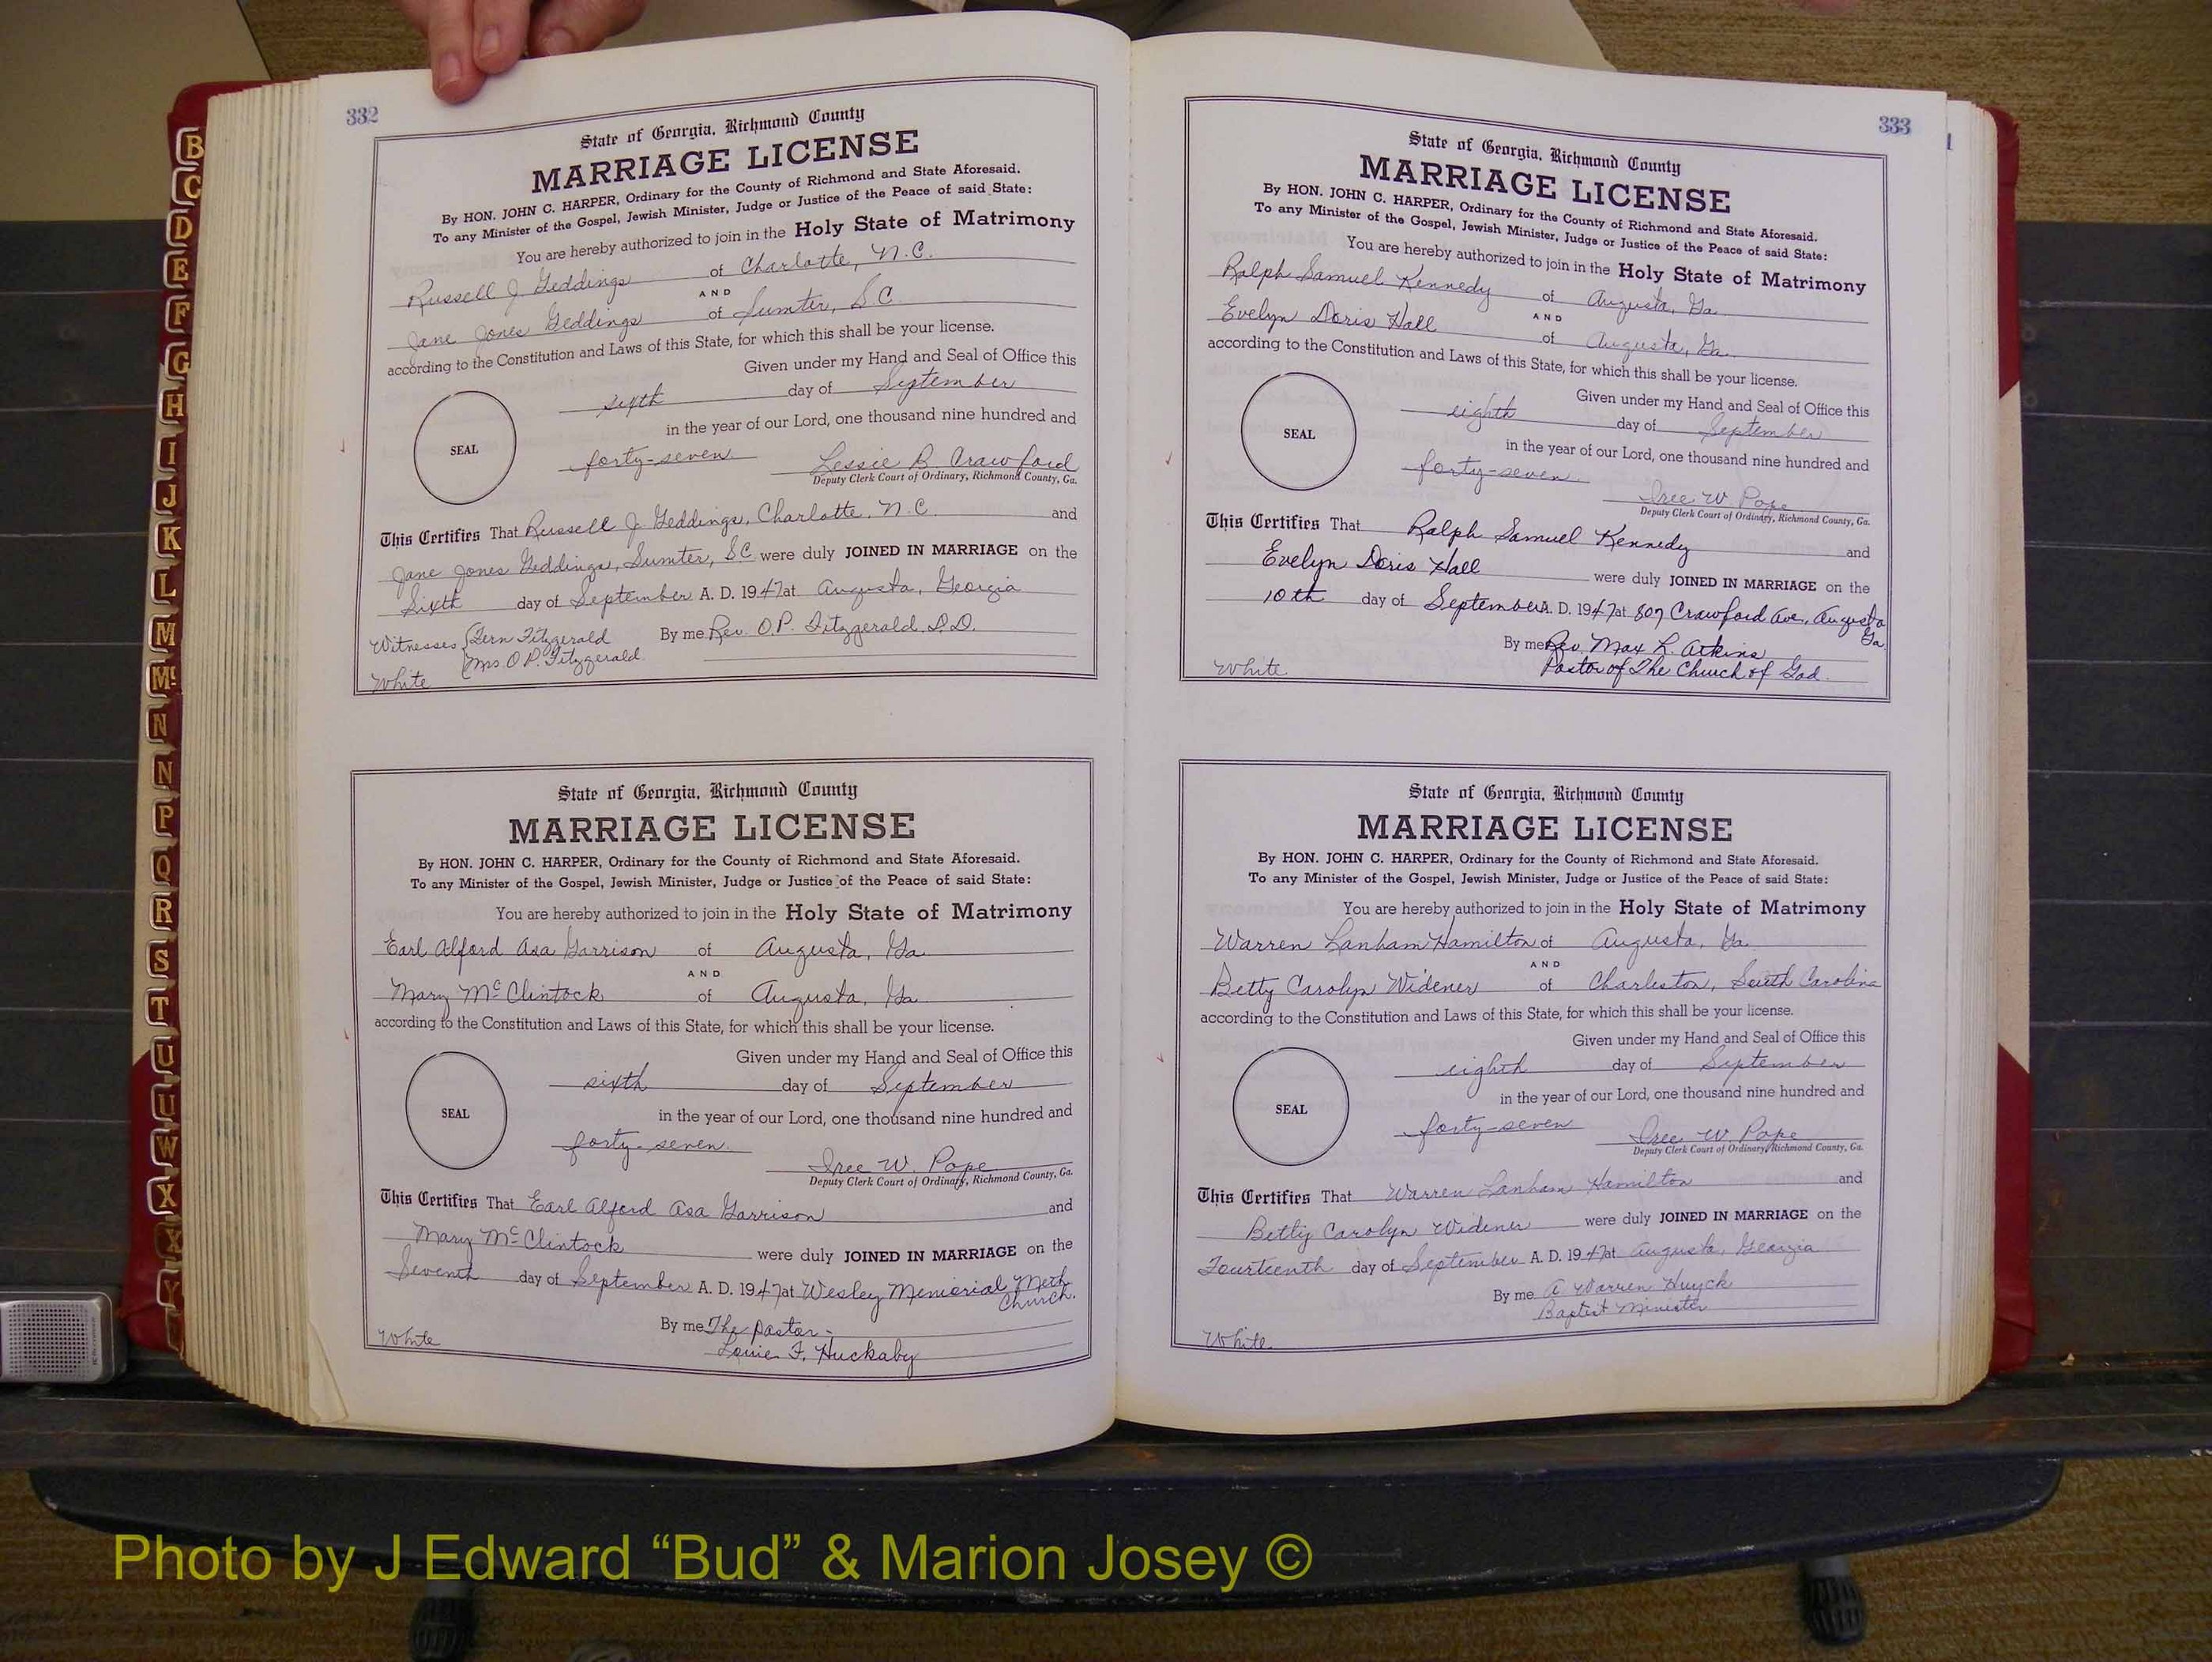 332
State of Georgia, Richmond County
MARRIAGE LICENSE
By HON. JOHN C. HARPER, Ordinary for the County of Richmond and State Aforesaid.
To any Minister of the Gospel, Jewish Minister, Judge or Justice of the Peace of said State:
You are hereby authorized to join in the Holy State of Matrimony
Russell J. Geddings of Charlotte, N.C.
AND
Jane Jones Geddings of Sumter, S.C.
according to the Constitution and Laws of this State, for which this shall be your license.
Given under my Hand and Seal of Office this
sixth day of September
in the year of our Lord, one thousand nine hundred and
SEAL
forty-seven Lessie B. Crawford
Deputy Clerk Court of Ordinary, Richmond County, Ga.
This Certifies That Russell J. Geddings, Charlotte, N.C. and
Jane Jones Geddings, Sumter, S.C. were duly JOINED IN MARRIAGE on the
Sixth day of September A. D. 1947 at Augusta, Georgia
Witnesses {Fern Fitzgerald By me Rev. O.P. Fitzgerald, D.D.
Mrs. O.P. Fitzgerald
White
State of Georgia, Richmond County
MARRIAGE LICENSE
By HON. JOHN C. HARPER, Ordinary for the County of Richmond and State Aforesaid.
To any Minister of the Gospel, Jewish Minister, Judge or Justice of the Peace of said State:
You are hereby authorized to join in the Holy State of Matrimony
Earl Alford Asa Garrison of Augusta, Ga.
AND
Mary McClintock of Augusta, Ga.
according to the Constitution and Laws of this State, for which this shall be your license.
Given under my Hand and Seal of Office this
sixth day of September
SEAL
in the year of our Lord, one thousand nine hundred and
forty-seven Iree W. Pope
Deputy Clerk Court of Ordinary, Richmond County, Ga.
This Certifies That Earl Alford Asa Garrison and
Mary McClintock were duly JOINED IN MARRIAGE on the
Seventh day of September A. D. 1947 at Wesley Memorial Meth.
Church.
By me The pastor-
White
Louie F. Huckaby
333
State of Georgia, Richmond County
MARRIAGE LICENSE
By HON. JOHN C. HARPER, Ordinary for the County of Richmond and State Aforesaid.
To any Minister of the Gospel, Jewish Minister, Judge or Justice of the Peace of said State:
You are hereby authorized to join in the Holy State of Matrimony
Ralph Samuel Kennedy of Augusta, Ga.
AND
Evelyn Doris Hall of Augusta, Ga.
according to the Constitution and Laws of this State, for which this shall be your license.
Given under my Hand and Seal of Office this
eighth day of September
SEAL
in the year of our Lord, one thousand nine hundred and
forty-seven Iree W. Pope
Deputy Clerk Court of Ordinary, Richmond County, Ga.
This Certifies That Ralph Samuel Kennedy and
Evelyn Doris Hall were duly JOINED IN MARRIAGE on the
10th day of September A. D. 1947 at 807 Crawford Ave., Augusta
Ga.
By me Rev. Max L. Atkins
White Pastor of The Church of God.
State of Georgia, Richmond County
MARRIAGE LICENSE
By HON. JOHN C. HARPER, Ordinary for the County of Richmond and State Aforesaid.
To any Minister of the Gospel, Jewish Minister, Judge or Justice of the Peace of said State:
You are hereby authorized to join in the Holy State of Matrimony
Warren Lanham Hamilton of Augusta, Ga.
AND
Betty Carolyn Widener of Charleston, South Carolina
according to the Constitution and Laws of this State, for which this shall be your license.
Given under my Hand and Seal of Office this
eighth day of September
in the year of our Lord, one thousand nine hundred and
SEAL
forty-seven Iree W. Pope
Deputy Clerk Court of Ordinary, Richmond County, Ga.
This Certifies That Warren Lanham Hamilton and
Betty Carolyn Widener were duly JOINED IN MARRIAGE on the
Fourteenth day of September A. D. 1947 at Augusta, Georgia
By me A. Warren Huyck
Baptist Minister
White
B
C
D
E
F
G
H
I
J
K
L
M
Mc
N
N
P
Q
R
S
T
U
U
W
X
X
Y
Photo by J Edward “Bud” & Marion Josey ©